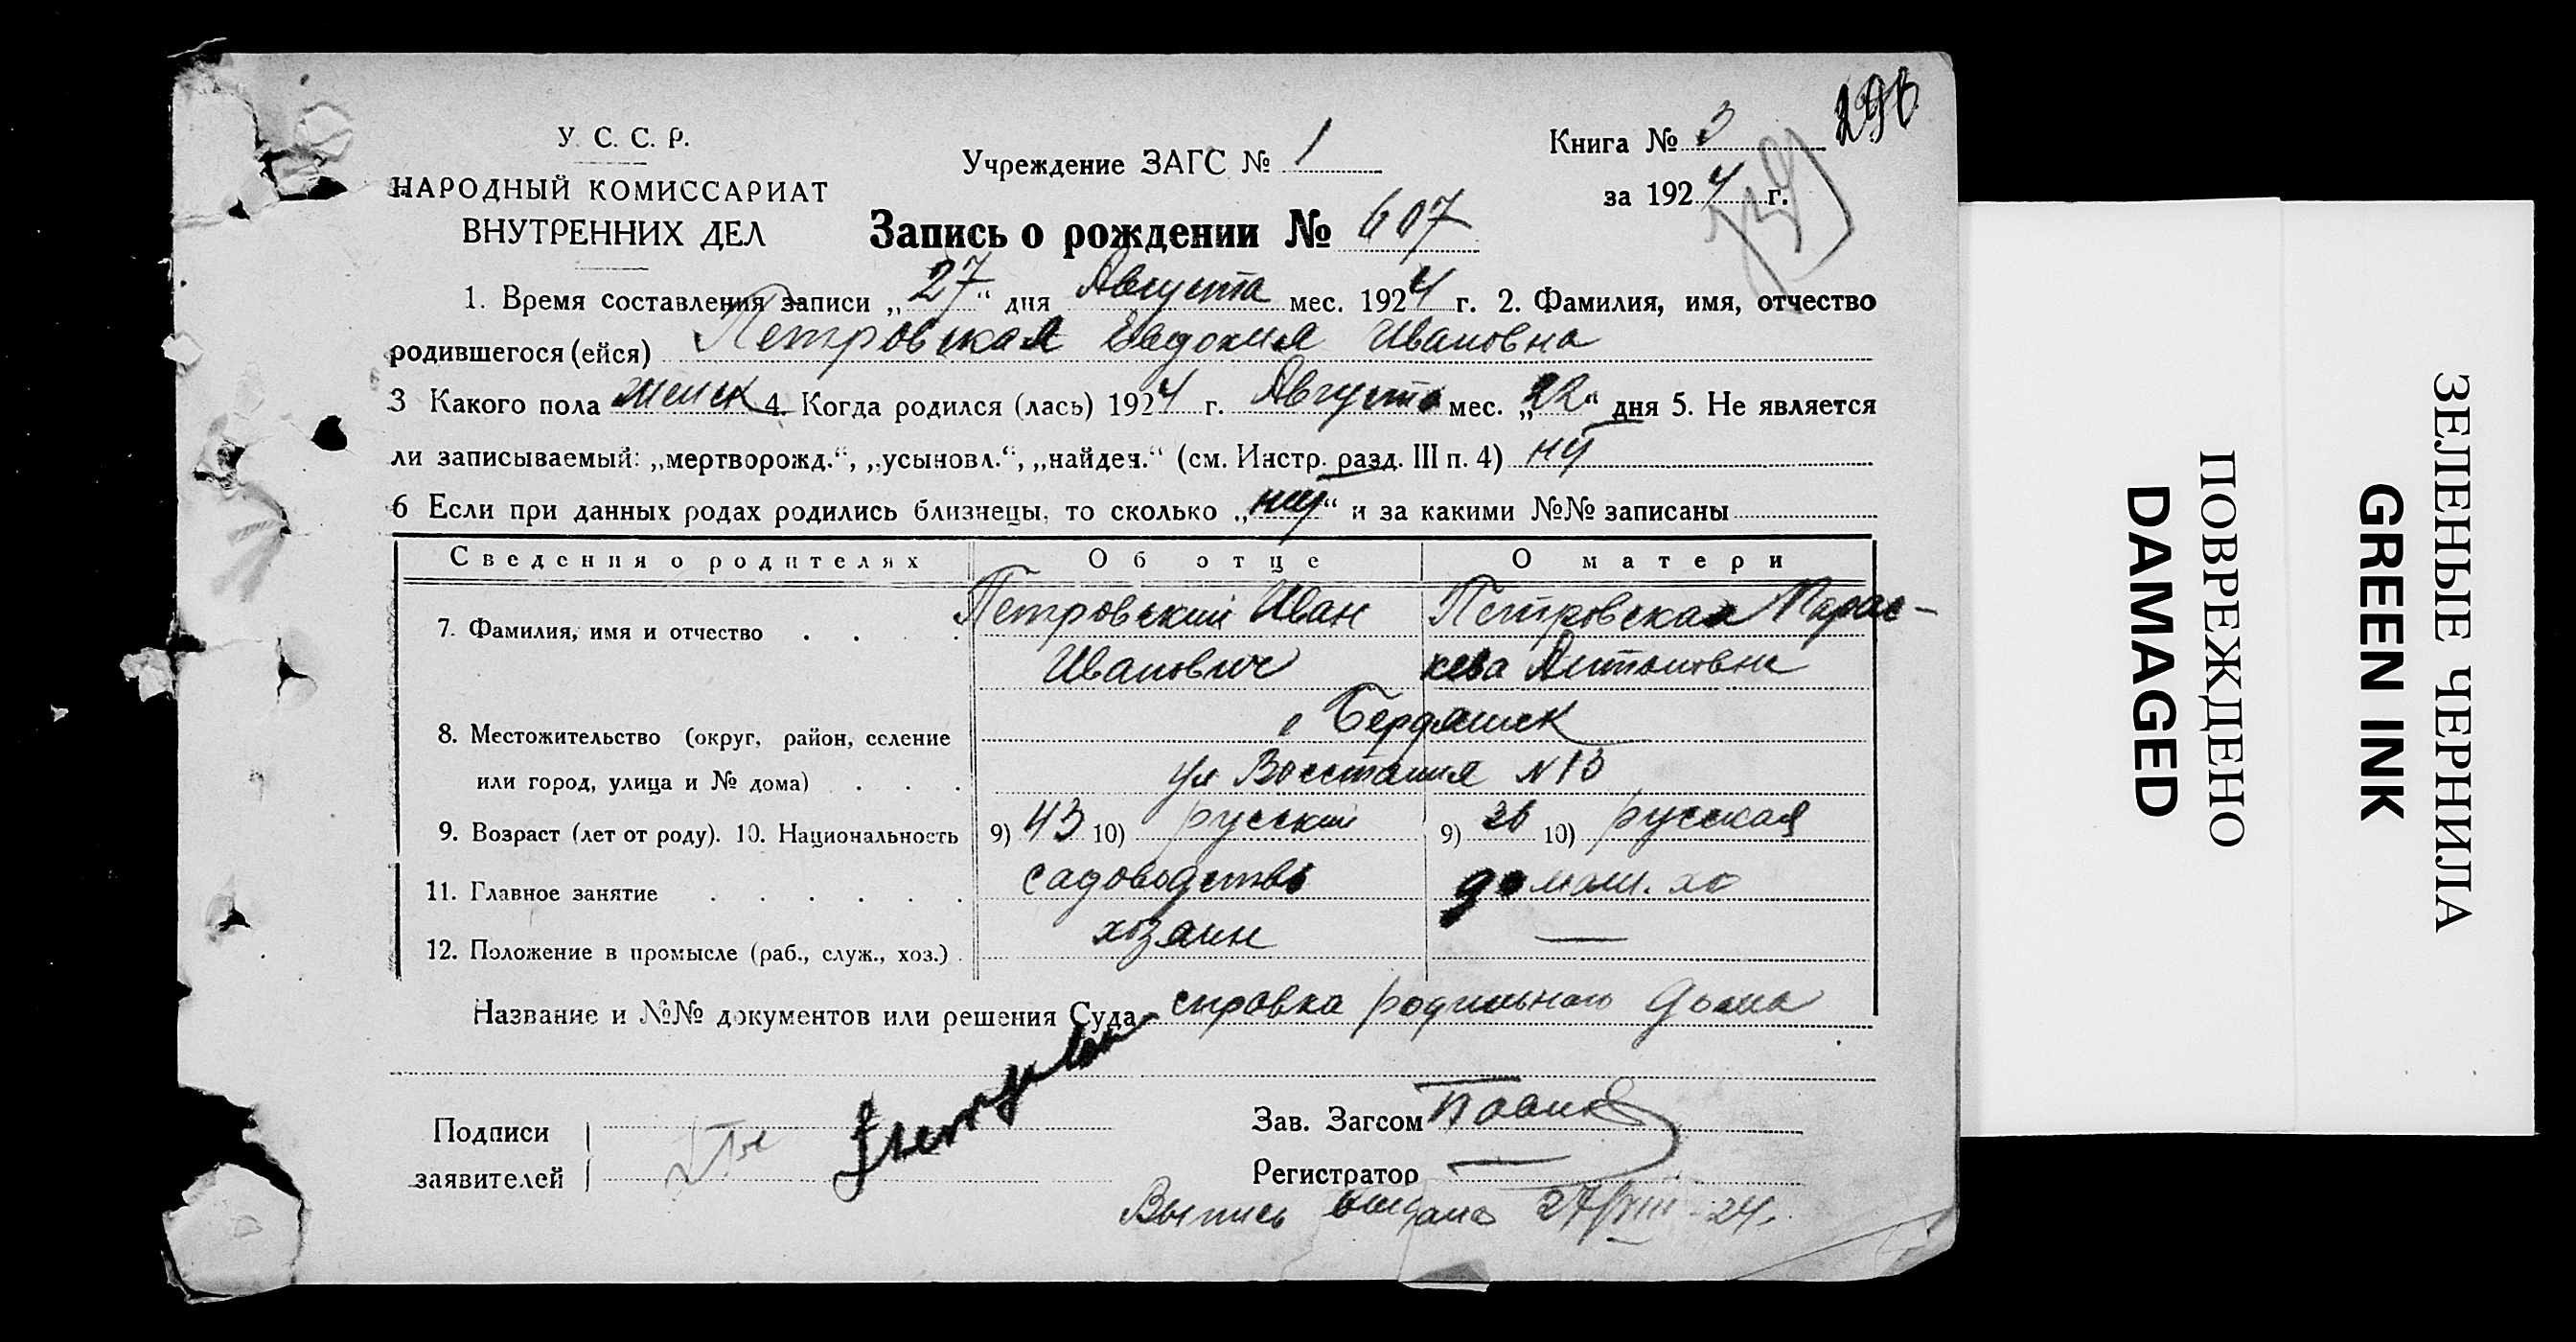 У. С. С. Р.
НАРОДНЫЙ КОМИССАРИАТ
ВНУТРЕННИХ ДЕЛ
Учреждение ЗАГС № 1
Книга № 3
за 1924 г.
Запись о рождении № 607
1. Время составления записи „27“ дня Августа мес. 1924 г. 2. Фамилия, имя, отчество
родившегося (ейся) Петровская Евдокия Ивановна
3 Какого пола женск 4. Когда родился (лась) 1924 г. Августа мес. „22“ дня 5. Не является
ли записываемый: „мертворожд.“, „усыновл.“, „найден.“ (см. Инстр. разд. III п. 4)
6 Если при данных родах родились близнецы, то сколько „ “ и за какими №№ записаны
Сведения о родителях Об отце О матери
7. Фамилия, имя и отчество Петровский Иван Петровская Парас-
Иванович кева Антоновна
8. Местожительство (округ, район, селение Бердянск
или город, улица и № дома) ул Восстания N 13
9. Возраст (лет от роду). 10. Национальность 9) 43 10) русский 9) 36 10) русская
11. Главное занятие садоводство домаш. хо
12. Положение в промысле (раб., служ., хоз.) хозяин —
Название и №№ документов или решения Суда справка родильного дома
Подписи
заявителей
Зав. Загсом
Регистратор
Выпись выдана 27/VIII-24.
ПОВРЕЖДЕНО
DAMAGED
ЗЕЛЕНЫЕ ЧЕРНИЛА
GREEN INK